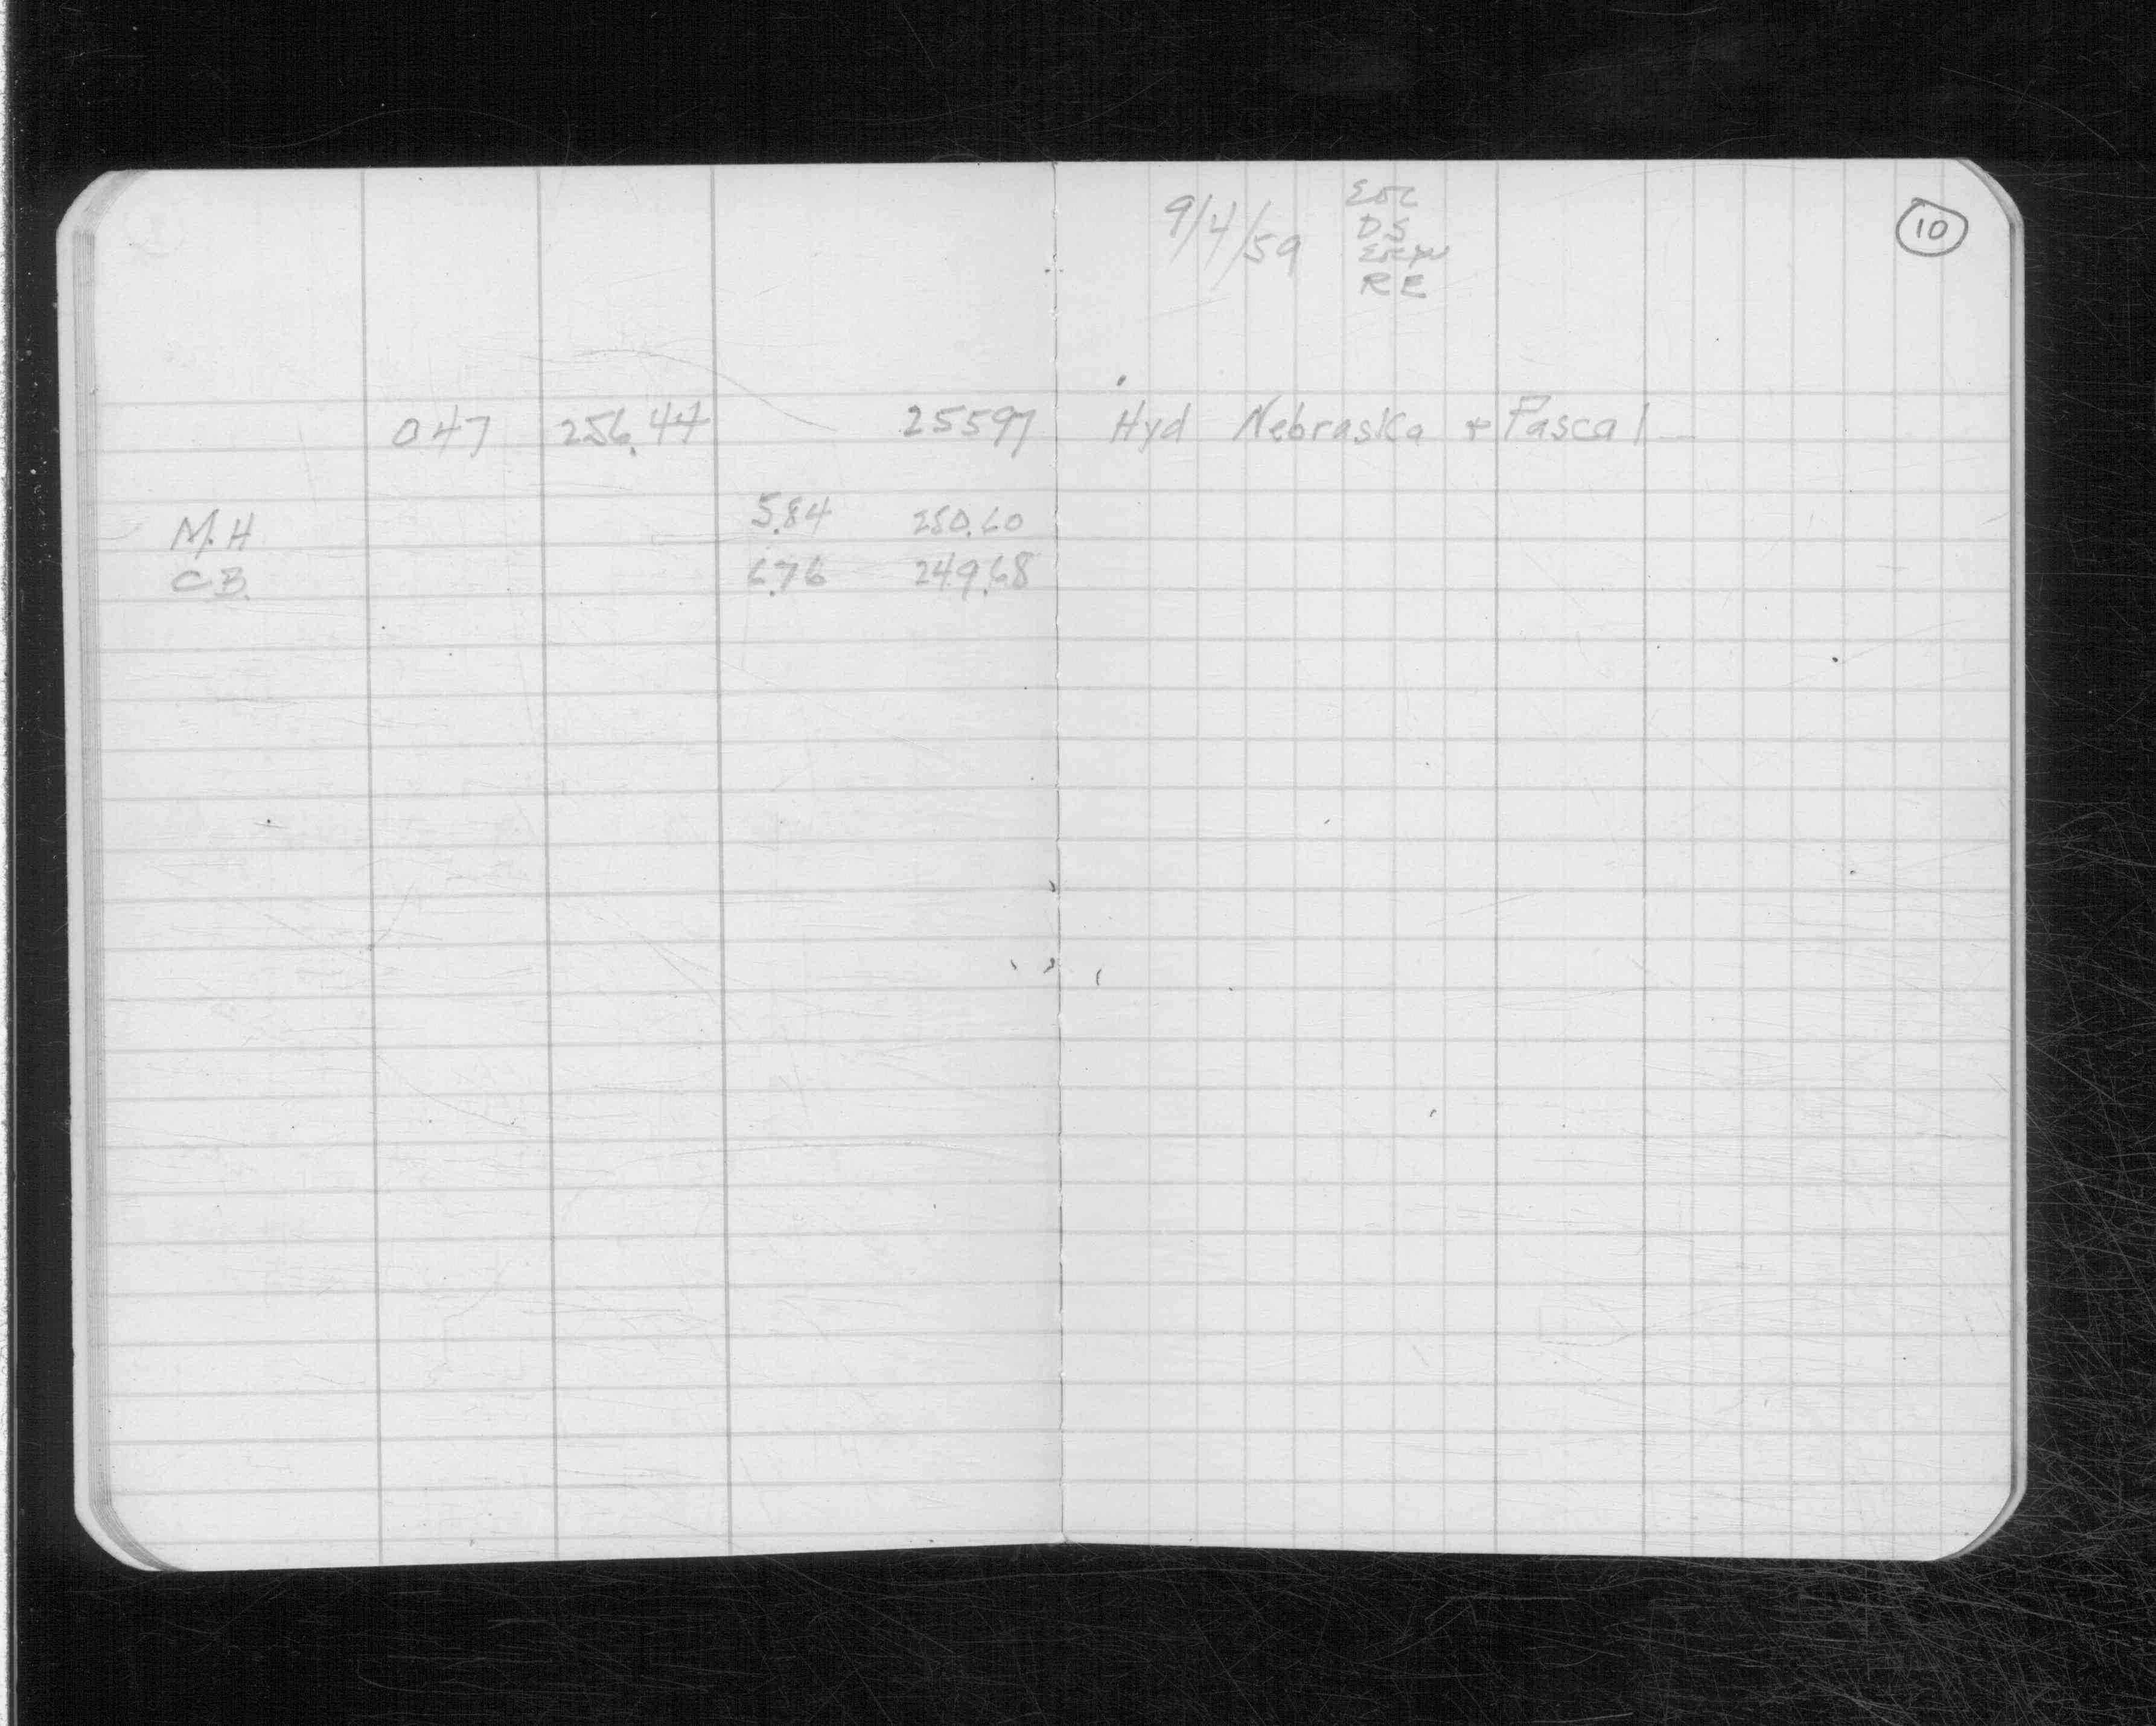 9/4/59
DS
RE
10
047 256.44 25597 Hyd Nebraska + Pascal
M.H 5.84 250.60
C.B. 6.76 249.68